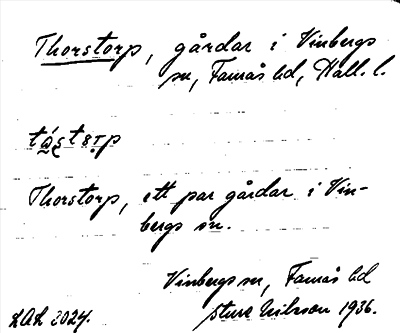 Thorstorp, gårdar i Vinbergs
sn, Famås hd, Hall. l.
Thorstorp, ett par gårdar i Vin-
bergs sn.
Vinbergs sn, Famås hd
Sture Nilsson 1936.
2024.